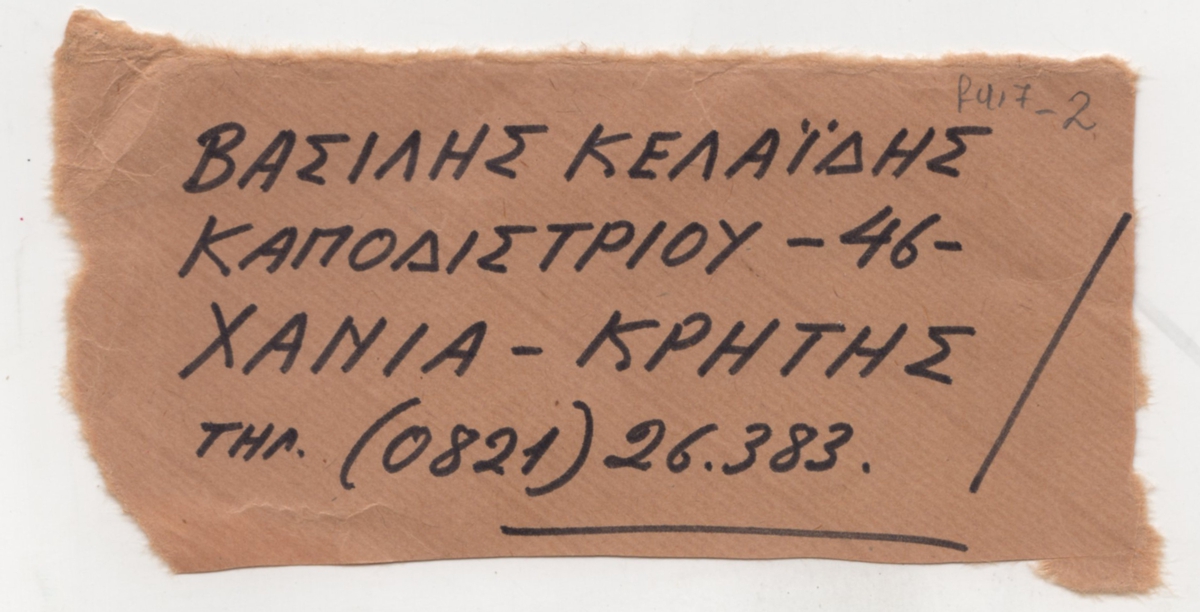 R417-2
ΒΑΣΙΛΗΣ ΚΕΛΑΪΔΗΣ
ΚΑΠΟΔΙΣΤΡΙΟΥ -46-
ΧΑΝΙΑ - ΚΡΗΤΗΣ
ΤΗΛ. (0821) 26.383.